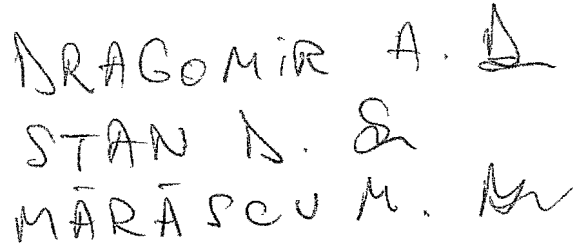 DRAGOMiR A.
STAN D.
MĀRĀSCU M.